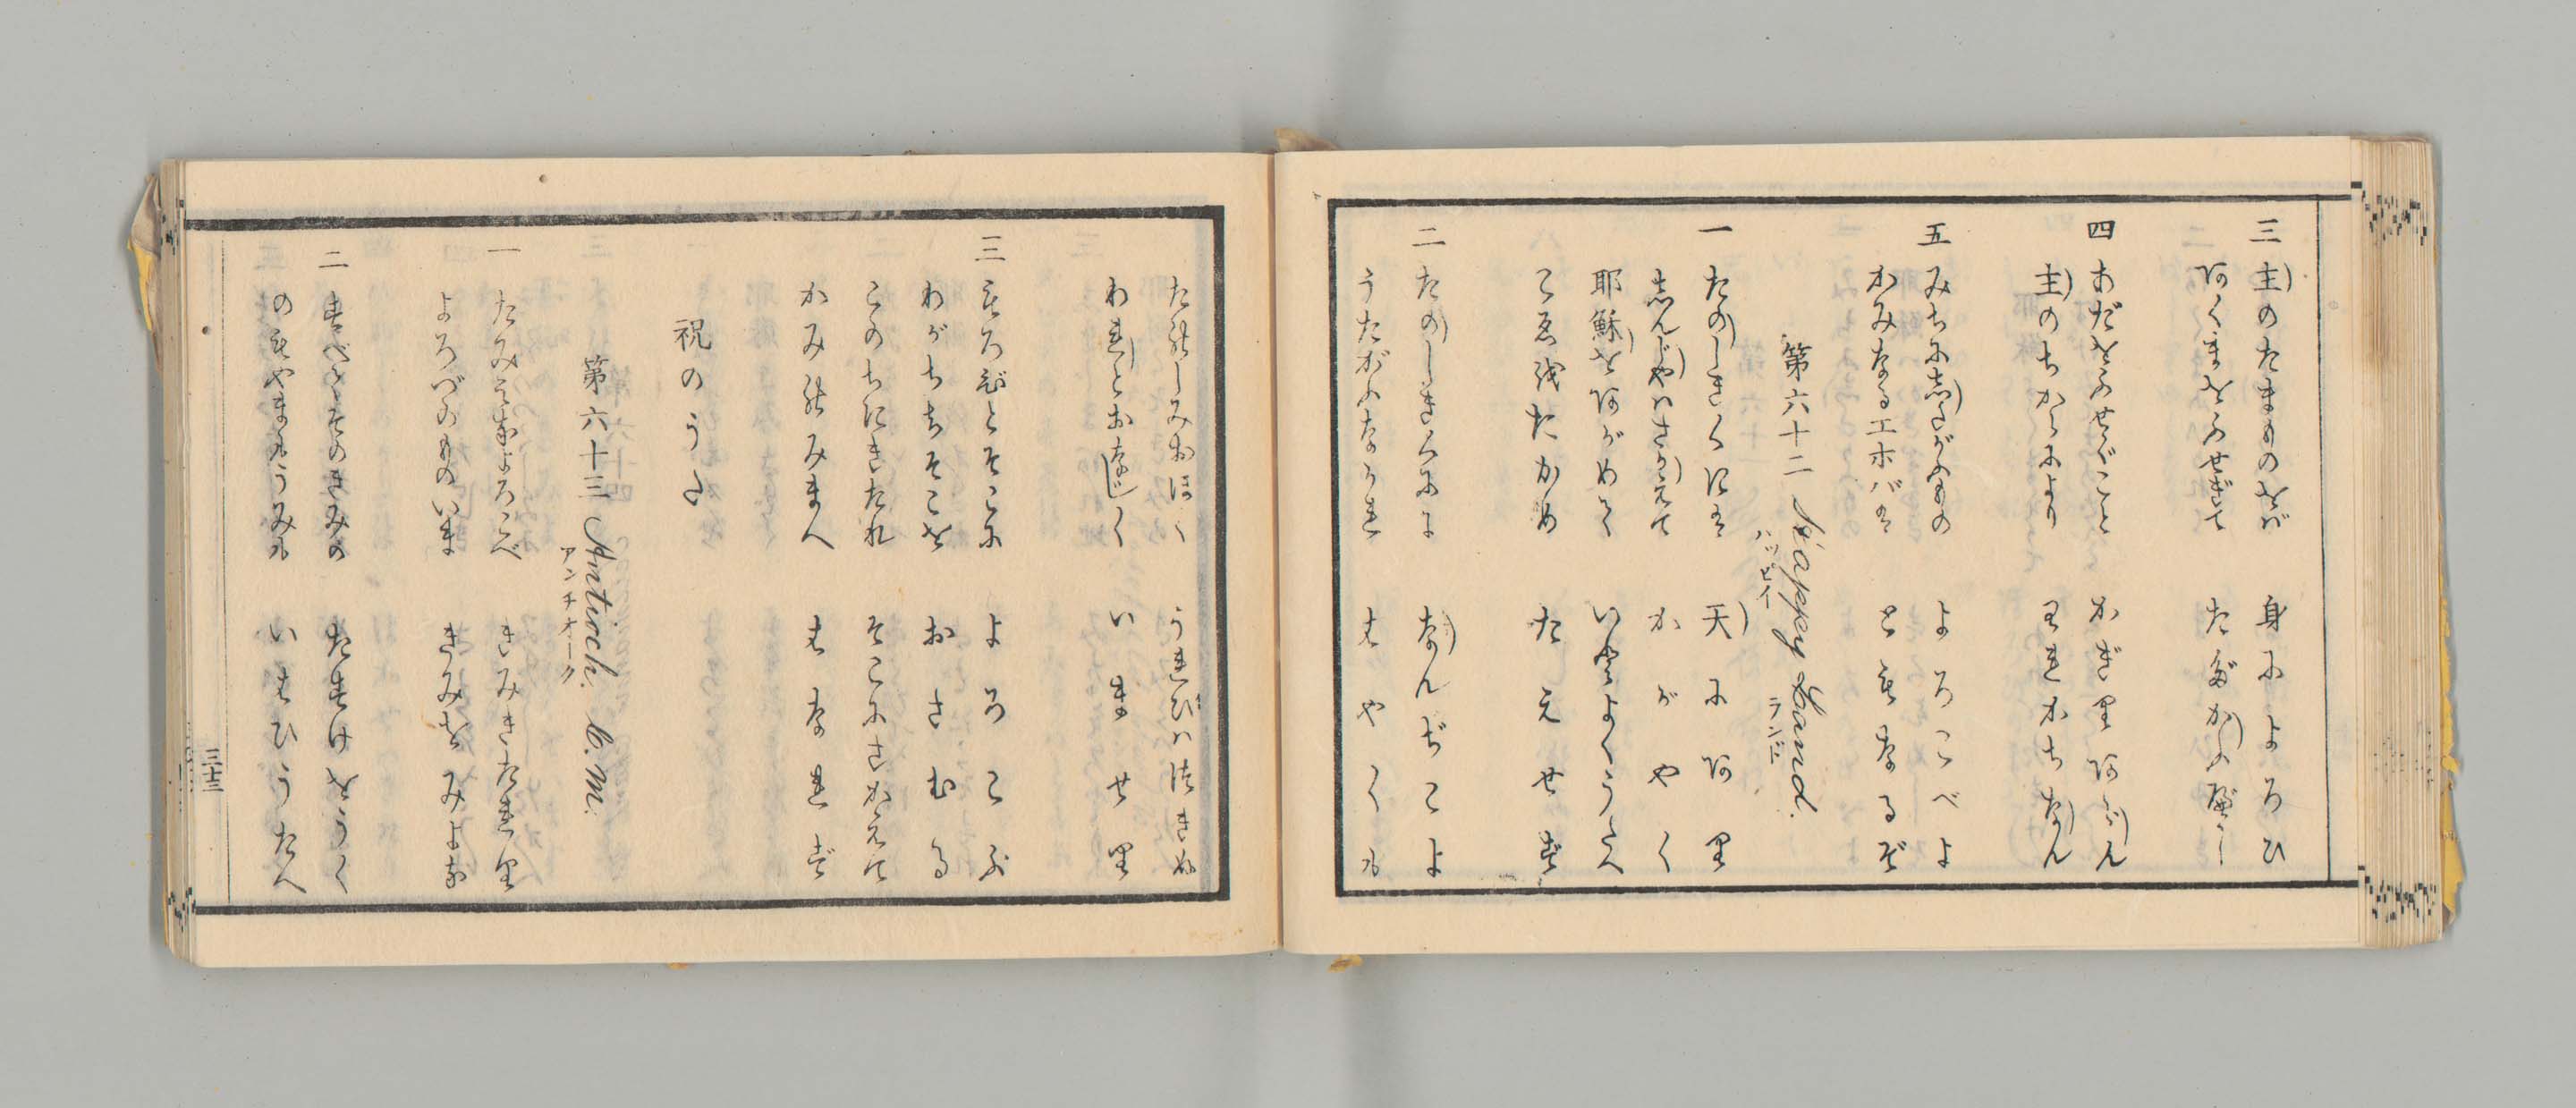 三 主のたまものをバ 身によろひ
あくまをふせぎて たゞかふべし
四 あだをふせぐこと かぎりあらん
主のちからにより われかちなん
五 みちにしたがふもの よろこべよ
かみなるエホバは ともなるぞ
第六十二 Happy Land.
ハッピイ ランド
一 たのしきくには 天にあり
しんじやハさかえて かがやく
耶穌をあがめて いはひようたへ
こゑ波たかめ たえせず
二 たのしきくにに なんぢこよ
うたがふなかれ はやくも
たのしみおほく うれひハつきぬ
われとおなじく いませり
三 もろびとそこに よろこぶ
わがちちそこを おさむる
このちにきたれ そこにさかえは
かみのみまへ はなれず
祝のうた
第六十三 Antioch. C. M.
アンチオーク
一 たみみなよろこべ きみきたれり
よろづのものいま きみをみよな
二 すべてそのきみの たすけをうく
のもやまもうみも いはひうたへ
三十三